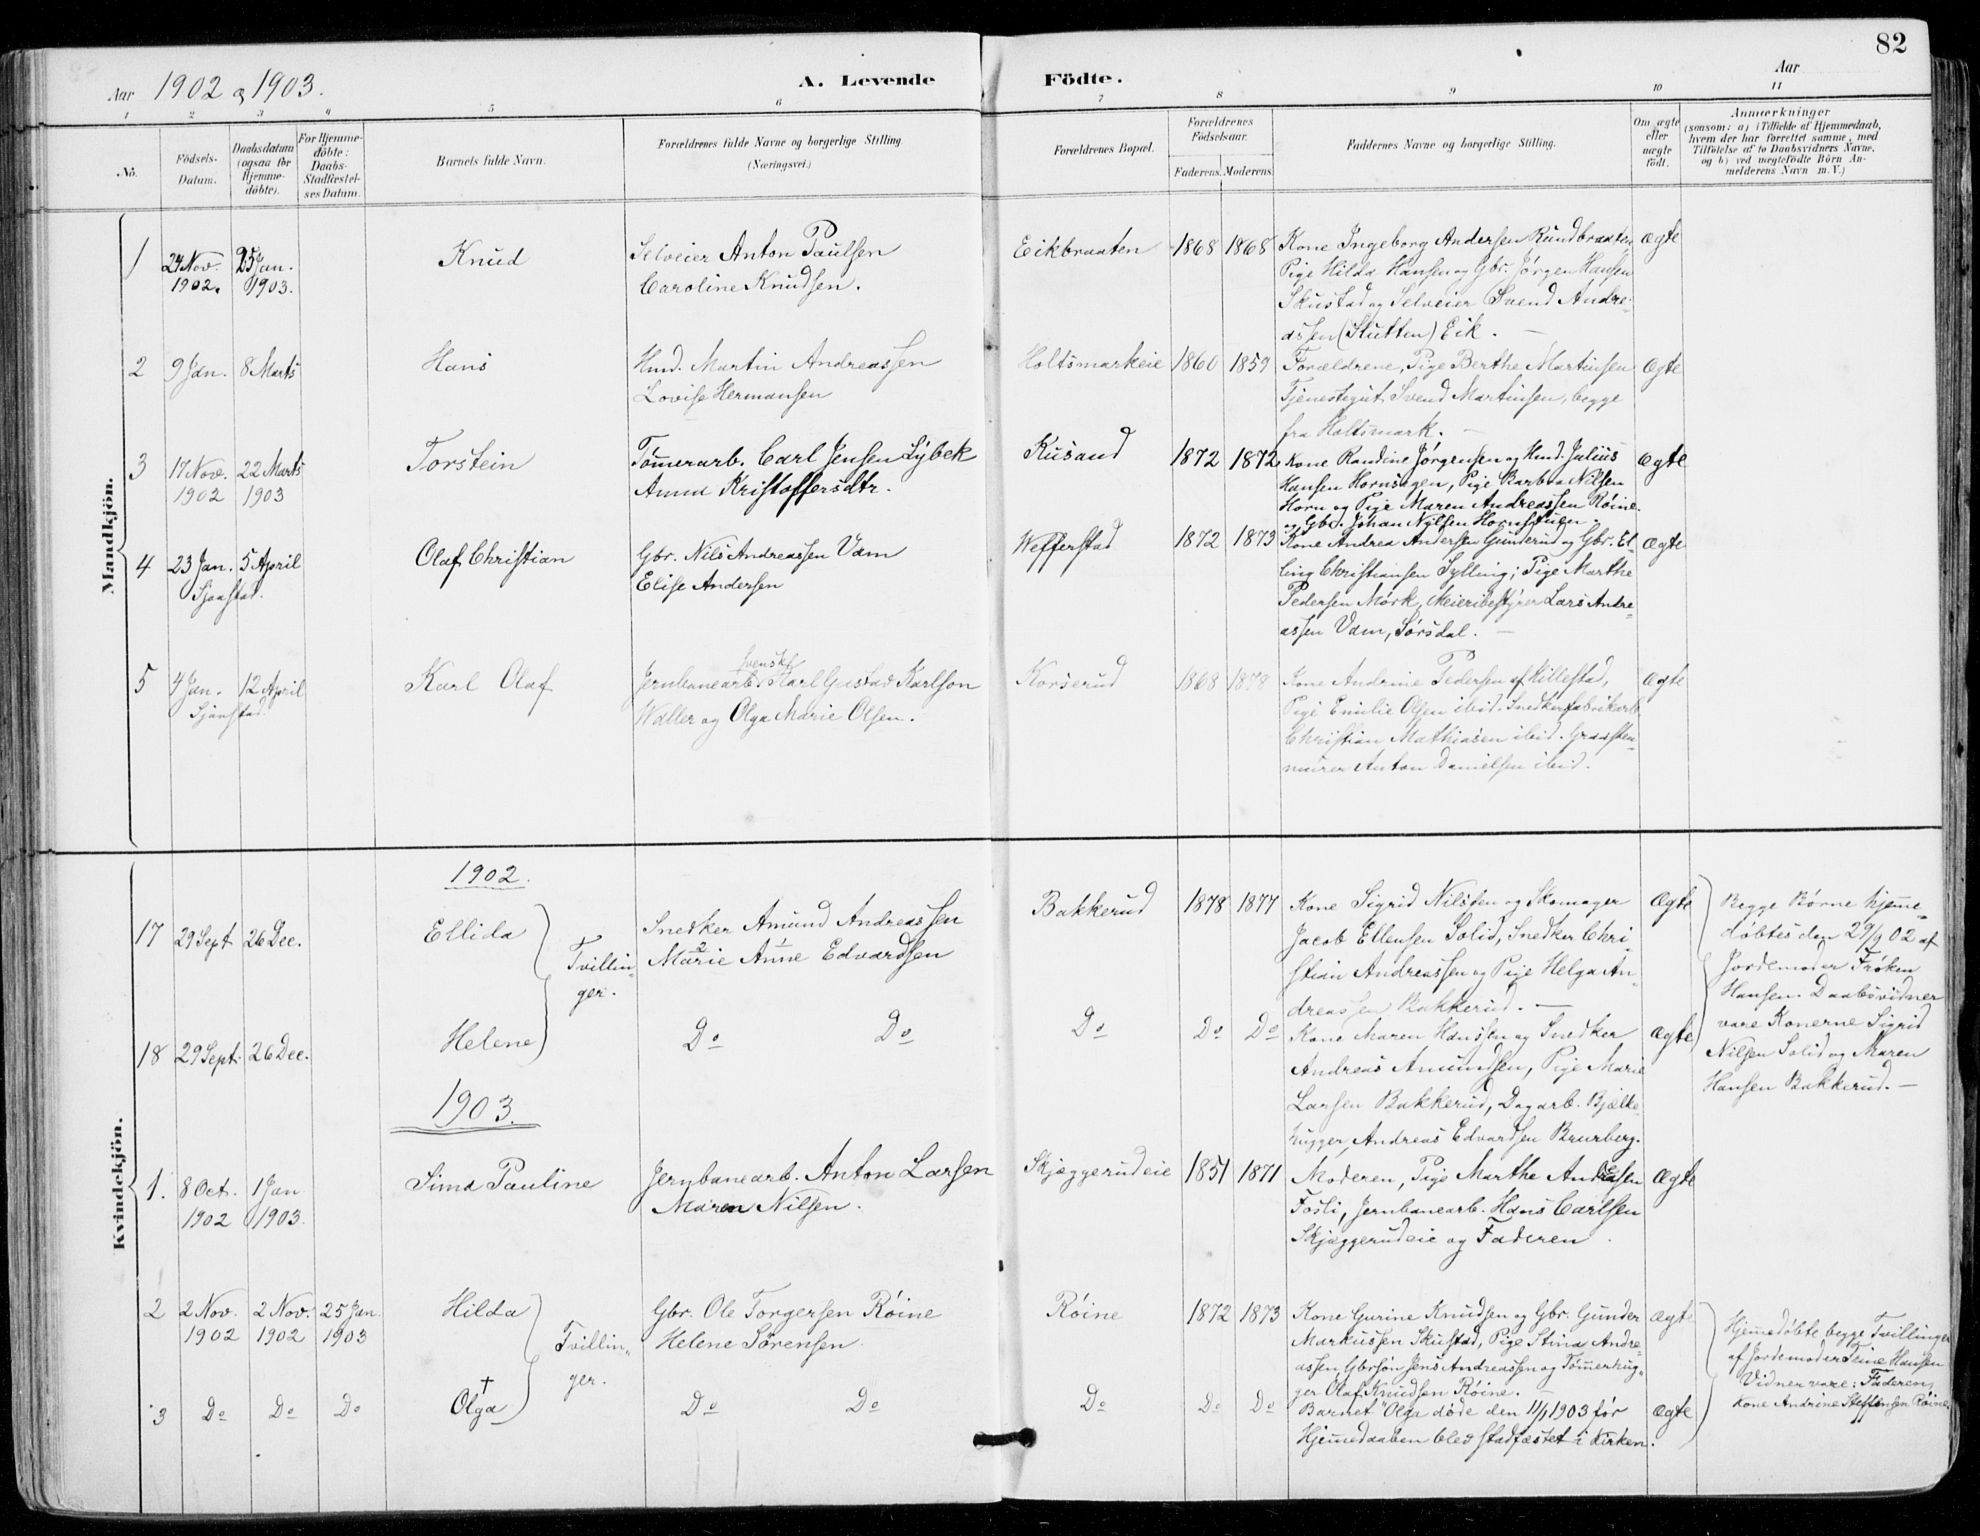 82
Aar 1902 og 1903.
A. Levende Födte.
Aar
1 2 3 4 5 6 7 8 9 10 11
No.
Födsels-Datum.
Daabsdatum (ogsaa for Hjemme-döbte).
For Hjemme-döbte: Daabs-Stadfæstel-ses Datum.
Barnets fulde Navn.
Forældrenes fulde Navne og borgerlige Stilling (Næringsvei.)
Forældrenes Bopæl.
Forældrenes Födselsaar.
Faderens. Moderens.
Faddernes Navne og borgerlige Stilling.
Om ægte eller uægte födt.
Anmærkninger
(saasom: a) i Tilfælde af Hjemmedaab,
hvem der har forrettet samme, med
Tilföielse af to Daabsvidners Navne,
og b) ved uægtefödte Börn An-
melderens Navn m. V.)
Mandkjön.
1 24 Nov. 1902. 25 Jan. 1903.
Knud
Selveier Anton Paulsen
Caroline Knudsen.
Eikbraaten 1868 1868
Kone Ingeborg Andersen Rundbraaten
Pige Hilda Hansen og Gbr. Jørgen Hansen
Skustad og Selveier Svend Andre-
assen (Stutten) Eik. —
Ægte
2 9 Jan. 8 Marts
Hans
Hmd. Martin Andreassen
Lovise Hermansen
Holtsmarkeie 1860 1859
Forældrene, Pige Berthe Martinsen
Tjenestegut Svend Martinsen, begge
fra Holtsmark. —
Ægte
3 17 Nov. 1902 22 Marts 1903
Torstein
Tømerarb. Carl Jensen Lybek
Anna Kristoffersdtr.
Kusand 1872 1872
Kone Randine Jørgensen og Hmd. Julius
Hansen Hornsagen, Pige Barbra Nilsen
Horn og Pige Maren Andreassen Røine
og Gbr. Johan Nilsen Hornstuen
Ægte
4 23 Jan. 5 April
Sjaastad.
Olaf Christian
Gbr. Nils Andreassen Vam
Elise Andersen
Wefferstad 1872 1873
Kone Andrea Andersen Gunderud og Gbr. El-
ling Christiansen Sylling; Pige Marthe
Pedersen Mørk, Meieribestyrer Lars Andre-
assen Vam, Sørsdal. —
Ægte
5 4 Jan. 12 April
Sjaastad.
Karl Olaf
svensk
Jernbanearb. Karl Gustav Karlson
Waller og Olga Marie Olsen.
Korserud 1868 1878
Kone Andrine Pedersen af Hillestad,
Pige Emilie Olsen ibid. Snedkerfabrikarb.
Christian Mathiasen ibid. Graasten-
murer Anton Danielsen ibid.
Ægte
Kvindekjön.
1902.
17 29 Sept 26 Dec.
Ellida
Tvillin-
ger.
Snedker Amund Andreassen
Marie Anne Edvardsen
Bakkerud 1878 1877
Kone Sigrid Nilsen og Skomager
Jacob Ellensen Solid, Snedker Chri-
stian Andreassen og Pige Helga An-
dreassen Bakkerud. —
Ægte
Begge Børne hjemme-
døbtes den 29/9 02 af
Jordemoder Frøken
Hansen. Daabsvidner
vare Konerne Sigrid
Nilsen Solid og Maren
Hansen Bakkerud. —
18 29 Sept. 26 Dec.
Helene
Do Do
Do Do Do
Kone Maren Hanssen og Snedker
Andreas Amundsen, Pige Marie
Larsen Bakkerud, Dagarb. Bjælke
hugger, Andreas Edvardsen Brurberg.
Ægte
1903.
1. 8 Oct. 1902 1 Jan 1903.
Sima Pauline
Jernbanearb. Anton Larsen
Maren Nilsen.
Skjæggerudeie 1851 1871
Moderen, Pige Marthe Andersen
Fosli, Jernbanearb. Hans Carlsen
Skjæggerudeie og Faderen.
Ægte
2 2 Nov. 1902 2 Nov. 1902 25 Jan. 1903
Hilda
Tvillin-
ger.
Gbr. Ole Torgersen Røine
Helene Sørensen
Røine 1872 1873
Kone Gurine Knudsen og Gbr. Gunder
Markussen Skustad, Pige Stina Andre-
assen, Gbrsøn Jens Andreassen og Tømmerhug-
ger Olaf Knudsen Røine.
Ægte
Hjemedøbte begge Tvillinger
af Jordemoder Trine Hansen
Vidner vare: Faderen,
Kone Andrine Steffensen Røine.
3 Do Do Do
Olga †
Do Do
Do Do Do
Barnet "Olga døde den 11/1 1903 før
Hjemedaaben blev stadfæstet i Kirken.
Ægte